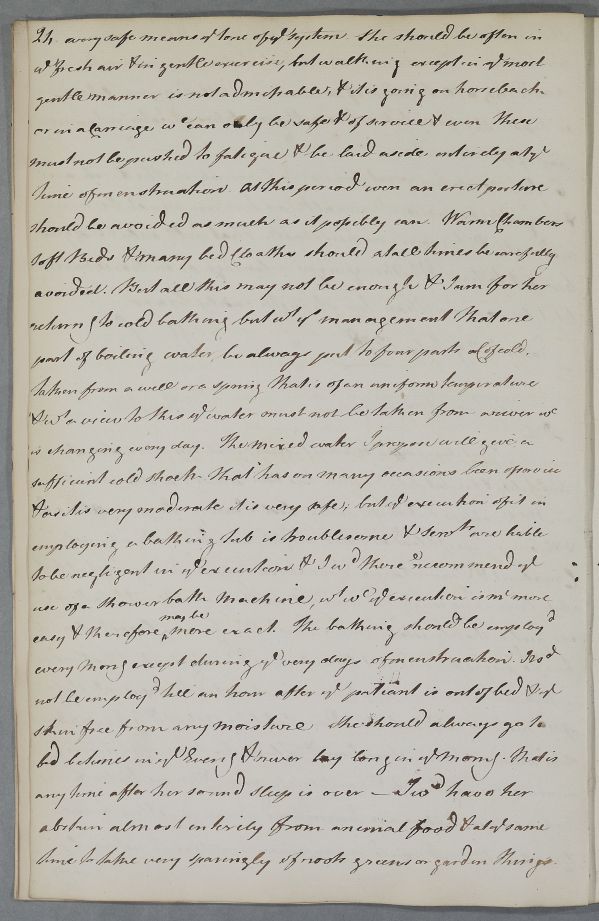 24. every safe means of tone of yᵉ System She should be often in
yᵉ fresh air & in gentle exercise, but walking except in yᵉ most
gentle manner is not admissable, & it is going on horseback
or in a Carriage wᶜ can only be safe & of service & even these
must not be pushed to fatigue & be laid aside entirely at yᵉ
time of menstruation at this period even an erect posture
should be avoided as much as it possibly can. Warm Chambers
soft Beds & many bed Cloaths should at all times be carefully
avoided. But all this may not be enough & I am for her
returning to cold bathing but wᵗ yˢ management that one
part of boiling water, be always put to four parts of cold,
taken from a well or a spring that is of an uniform temperature
& wᵗ a view to this yᵉ water must not be taken from a river wᶜ
is changing every day. The mixed water I propose will give a
sufficient cold shock that has on many occasions been of service
& as it is very moderate it is very safe; but yᵉ execution of it in
employing a bathing tub is troublesome & servᵗˢ are liable
to be negligent in yᵉ execution & I wᵈ therefore recommend yᵉ
use of a shower bath Machine, wᵗ wᶜ yᵉ execution is more
easy & therefore may be more exact. The bathing should be employᵈ
every Morng except during yᵉ very days of menstruation.
not be employᵈ till an hour after yᵉ patient is out of bed & yᵉ
skin free from any moisture She should always go to
bed betimes in yᵉ Eveng & never lay long in yᵉ Morng. that is
any time after her sound sleep is over — I wᵈ have her
abstain almost entirely from animal food & at yᵉ same
time to take very sparingly of roots greens or garden things.